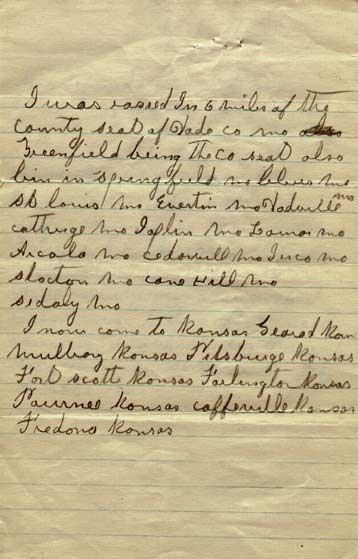 I was rasied In 6 miles of the
county seat of Dade co mo
Greenfield being the co seat also
bin in Springfield mo bliver mo
st louis mo Evertin mo Dadville mo
cathrge mo Joplin mo Lamar mo
Arcola mo cedarvill mo Jerco mo
stocton mo cane Hill mo
sedaly mo
I now come to Kansas Gearad Kan
mulbery Kansas Pitsburge Kansas
Fort scott Kansas Farlington Kansas
Pawrnee Kansas caffervill Kansas
Fredona Kansas